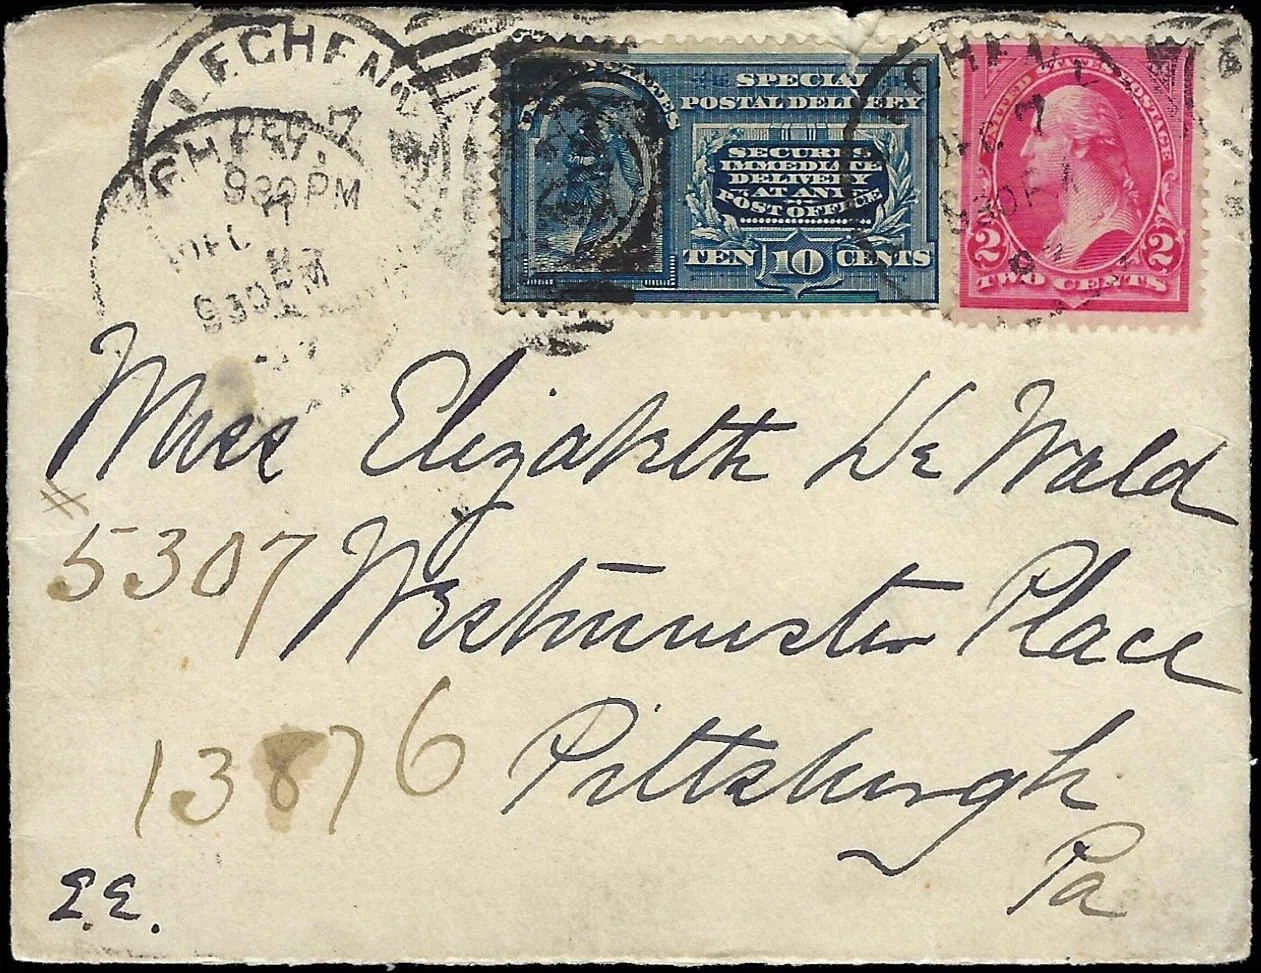 LEGHEN
DEC 7
930PM
DEC
930PM
SPECIAL
POSTAL DELIVERY
SECURES
IMMEDIATE
DELIVERY
AT ANY
POST OFFICE
TEN 10 CENTS
GHEN
DEC 7
930P
UNITED STATES POSTAGE
2 2
TWO CENTS
Miss Elizabeth De Wald
#
5307 Westminster Place
13876 Pittsburgh
Pa
E.E.